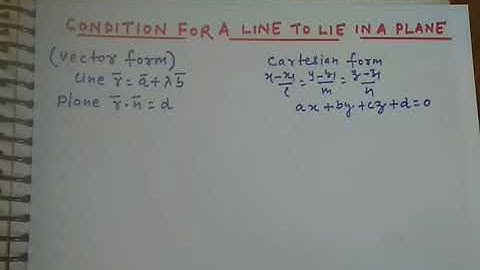 CONDITION FOR A LINE TO LIE IN A PLANE
(Vector form)
Line r̅ = a̅ + λb̅
Plane r̅ · n̅ = d
Cartesian form
x-x₁/l = y-y₁/m = z-z₁/n
ax + by + cz + d = 0